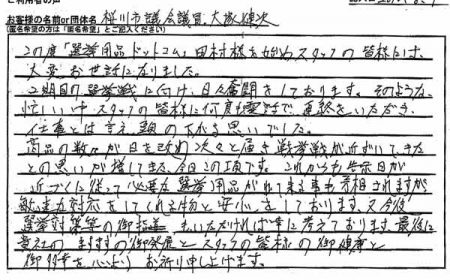 お客様の名前or団体名 桜川市議会議員 大塚 秀次
(匿名希望の方は「匿名希望」とご記入ください)
この度「選挙用品ドットコム」田村様を始めスタッフの皆様には、
大変お世話になりました。
2期目の選挙戦に向け、日々奮闘をしております。そのような、
忙しい中スタッフの皆様に何度も電話で連絡をいただき、
仕事とは言え、頭の下がる思いでした。
商品の数々が日を改め次々と届き選挙戦が近づいてきた
との思いが増してきた今日この頃です。これからも告示日が
近づくに従って必要な選挙用品がでて来る事も予想されますが
敏速な対応をしてくれる物と安心をしております。又今後
選挙対策等の御指導もいただければ幸に考えております。最後に
貴社の ますますの御発展とスタッフの皆様の御健康と
御多幸を心よりお祈り申し上げます。